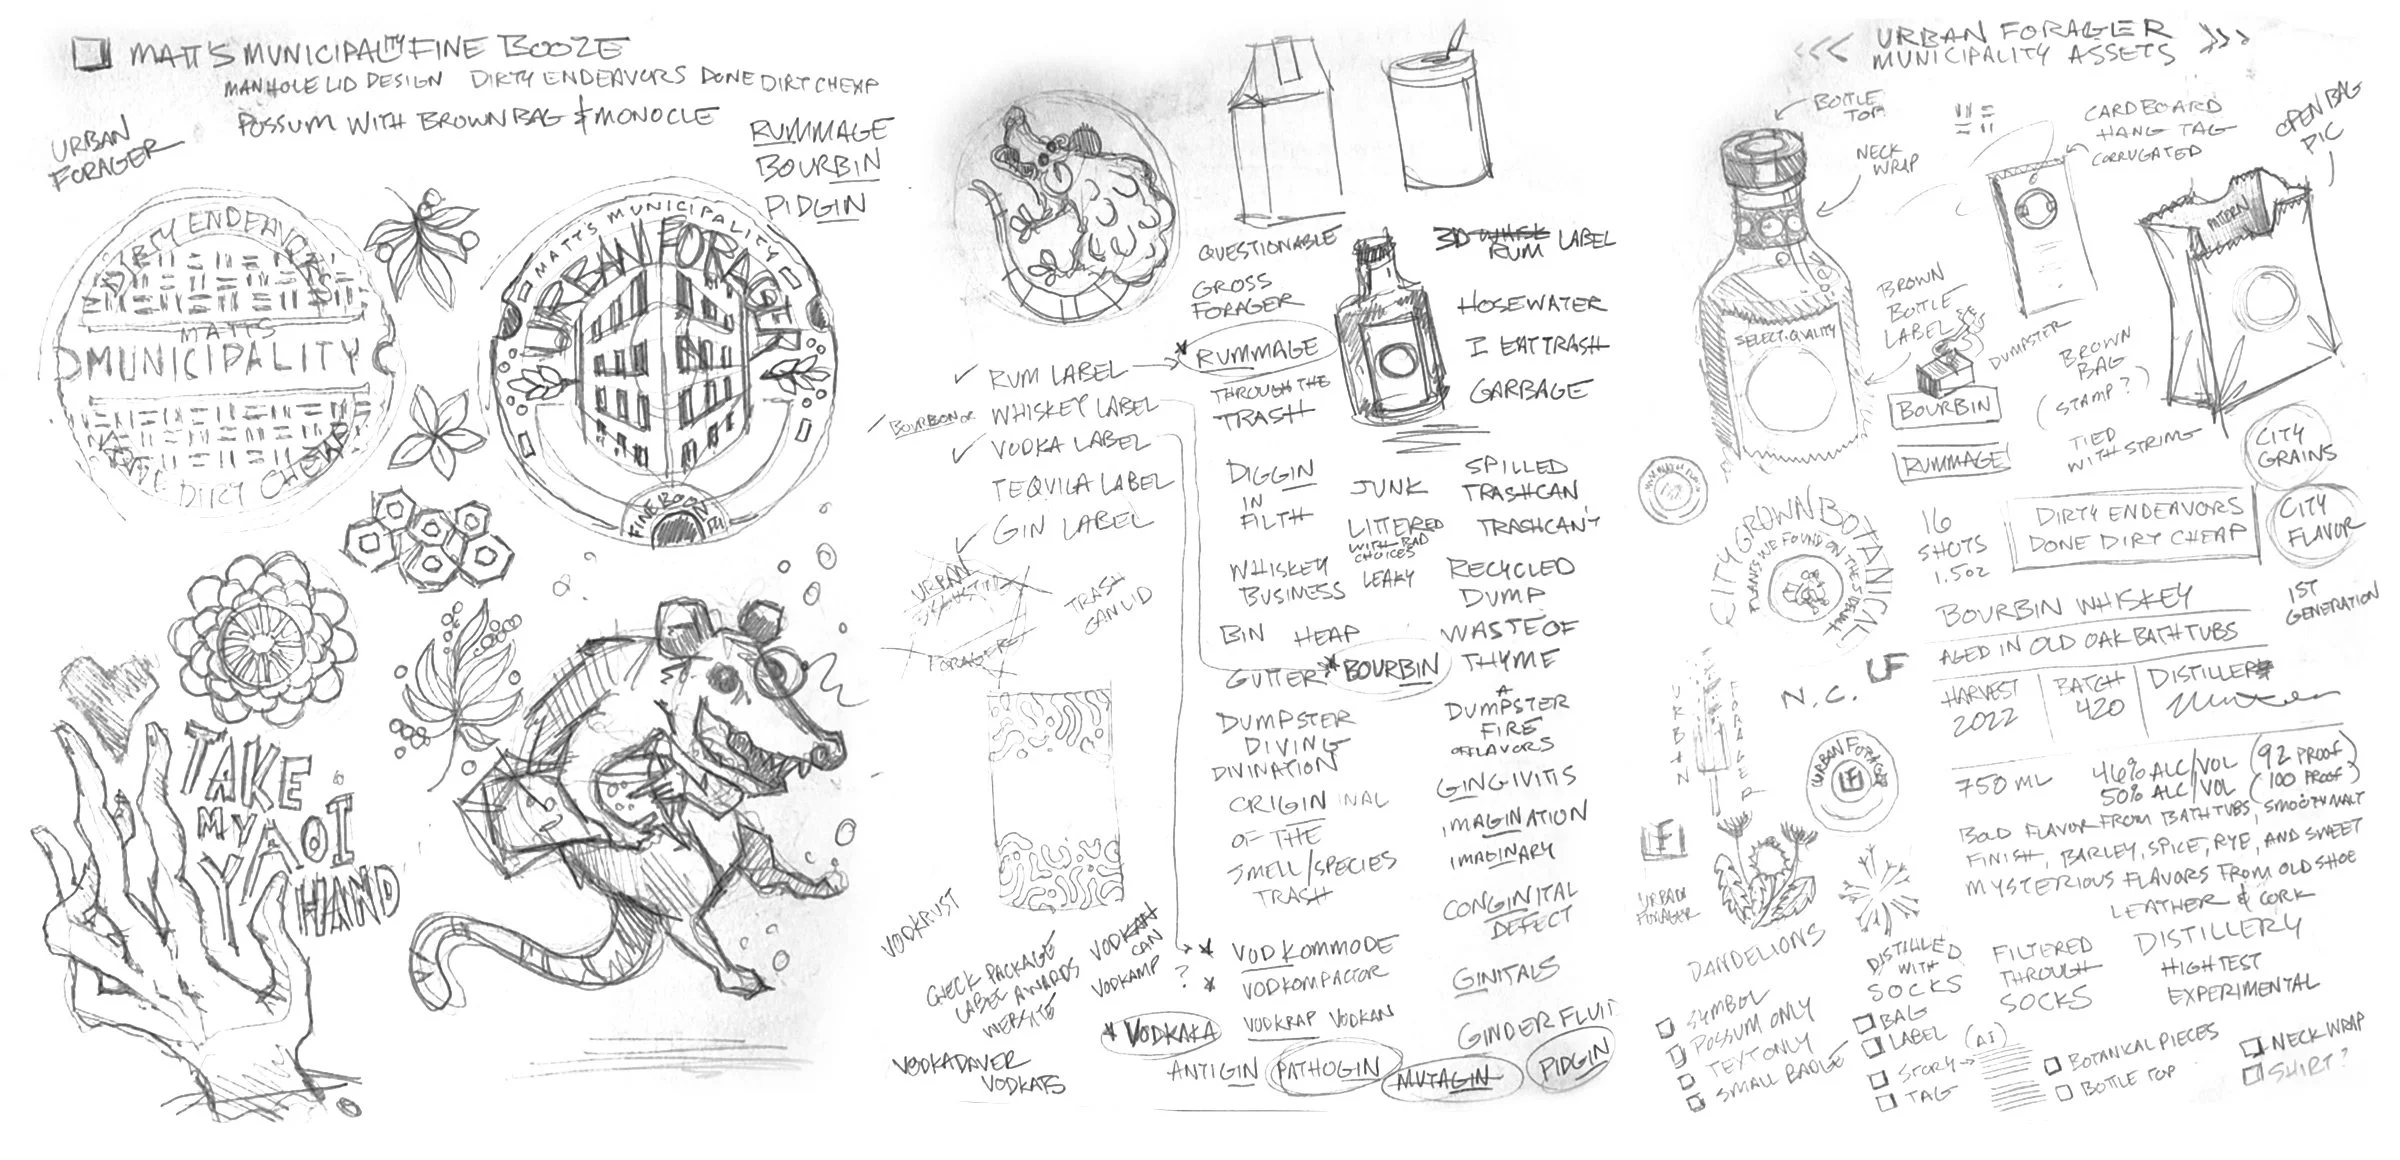 MATT'S MUNICIPALITY FINE BOOZE
MANHOLE LID DESIGN DIRTY ENDEAVORS DONE DIRT CHEAP
POSSUM WITH BROWN BAG & MONOCLE
URBAN
FORAGER
RUMMAGE
BOURBIN
PIDGIN
DIRTY ENDEAVORS
MATTS
MUNICIPALITY
DONE DIRT CHEAP
MATT'S MUNICIPALITY
URBAN FORAGER
FINE BOOZE
TAKE
MY
YAOI
HAND
QUESTIONABLE
GROSS
FORAGER
RUMMAGE
THROUGH THE
TRASH
RUM LABEL
BOURBON OR WHISKEY LABEL
VODKA LABEL
TEQUILA LABEL
GIN LABEL
URBAN
FORAGER
TRASH
CAN LID
3D WHISK LABEL
RUM
HOSEWATER
I EAT TRASH
GARBAGE
DIGGIN
IN
FILTH
JUNK
LITTERED
WITH BAD
CHOICES
LEAKY
SPILLED
TRASHCAN
TRASHCAN'T
WHISKEY
BUSINESS
RECYCLED
DUMP
BIN HEAP
GUTTER BOURBIN
WASTE OF
THYME
DUMPSTER
DIVING
DIVINATION
A
DUMPSTER
FIRE
OF FLAVORS
ORIGINAL
OF THE
SMELL/SPECIES
TRASH
GINGIVITIS
IMAGINATION
IMAGINARY
CONGINITAL
DEFECT
GINITALS
GINDERFLUIT
VODKRUST
CHECK PACKAGE
LABEL AWARDS
WEBSITE
VODKAN
CAN
VODKAMP ?
VODKOMMODE
VODKOMPACTOR
VODKAKA VODKRAP VODKAN
VODKADAVER
VODKATS
ANTIGIN PATHOGIN MUTAGIN PIDGIN
<<< URBAN FORAGER >>>
MUNICIPALITY ASSETS
BOTTLE
TOP
NECK
WRAP
CARDBOARD
HANG TAG
CORRUGATED
OPEN BAG
PIC
PATTERN
BROWN
BOTTLE
LABEL
SELECT QUALITY
DUMPSTER
BROWN
BAG
(STAMP?)
TIED
WITH STRING
BOURBIN
RUMMAGE
CITY
GRAINS
CITY
FLAVOR
CITY GROWN BOTANICAL
PLANTS WE FOUND ON THE SIDEWALK
16
SHOTS
1.5OZ
DIRTY ENDEAVORS
DONE DIRT CHEAP
1ST
GENERATION
BOURBIN WHISKEY
AGED IN OLD OAK BATHTUBS
UF
N.C.
HARVEST
2022
BATCH
420
DISTILLER
URBAN FORAGER
URBAN FORAGER
UF
750 ML
46% ALC/VOL (92 PROOF)
50% ALC/VOL (100 PROOF)
BOLD FLAVOR FROM BATHTUBS, SMOOTH MALT
FINISH, BARLEY, SPICE, RYE, AND SWEET
MYSTERIOUS FLAVORS FROM OLD SHOE
LEATHER & CORK
UF
URBAN
FORAGER
DANDELIONS
DISTILLED
WITH
SOCKS
FILTERED
THROUGH
SOCKS
DISTILLERY
HIGH TEST
EXPERIMENTAL
SYMBOL
POSSUM ONLY
TEXT ONLY
SMALL BADGE
BAG
LABEL
STORY → (AI)
TAG
BOTANICAL PIECES
BOTTLE TOP
NECK WRAP
SHIRT?